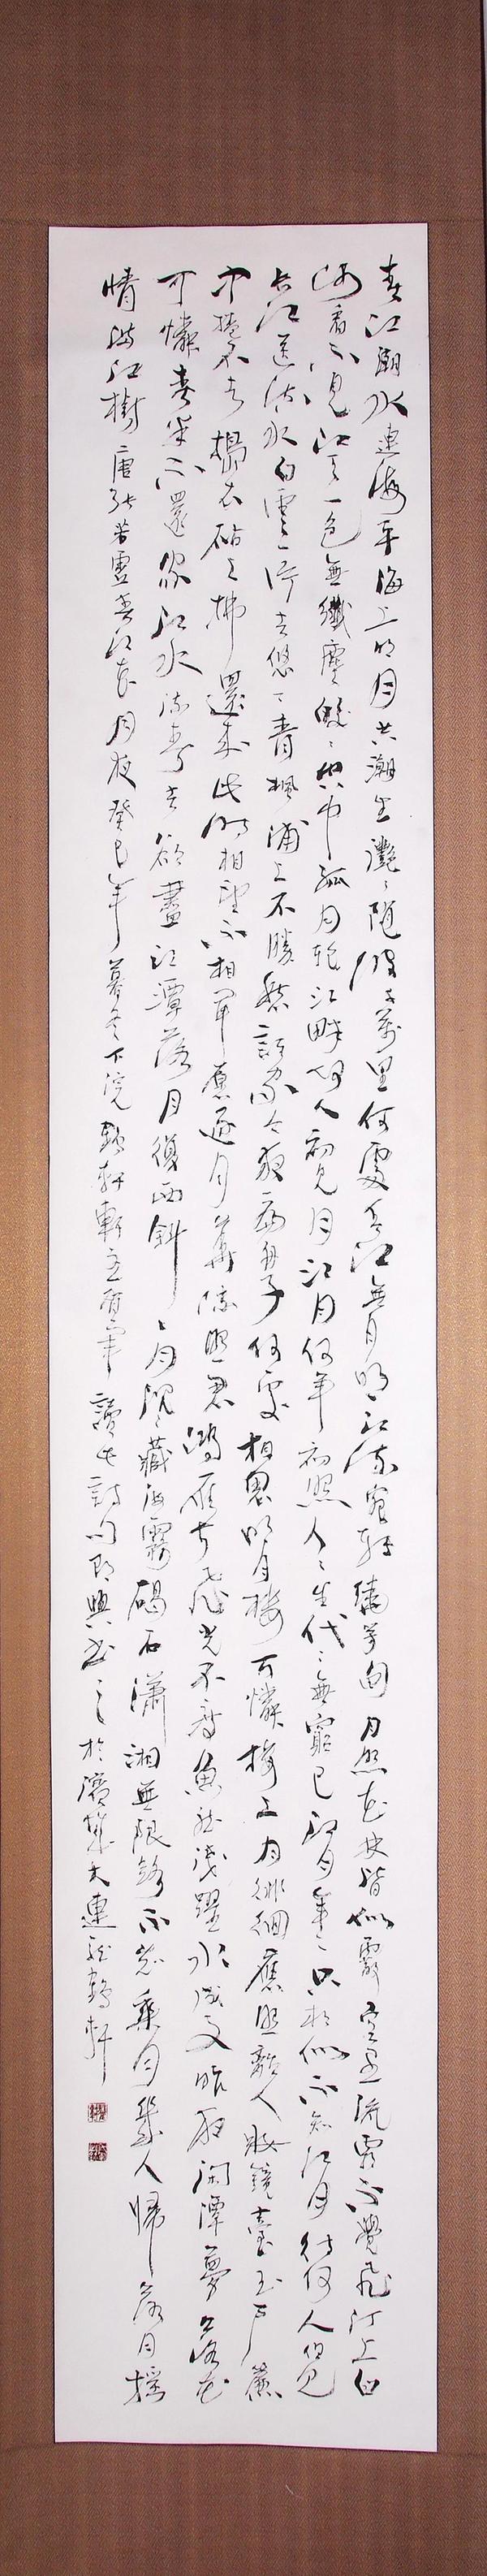 春江潮水連海平海上明月共潮生灧〻隨波千萬里何處春江無月明江流宛轉繞芳甸月照花林皆似霰空裏流霜不覺飛汀上白
沙看不見江天一色無纖塵皎〻空中孤月輪江畔何人初見月江月何年初照人〻生代〻無窮已江月年〻只相似不知江月待何人但見
長江送流水白雲一片去悠〻青楓浦上不勝愁誰家今夜扁舟子何處相思明月樓可憐樓上月徘徊應照離人妝鏡臺玉戶簾
中捲不去搗衣砧上拂還來此時相望不相聞願逐月華流照君鴻雁長飛光不度魚龍潛躍水成文昨夜閑潭夢落花
可憐春半不還家江水流春去欲盡江潭落月復西斜〻月沉〻藏海霧碣石瀟湘無限路不知乘月幾人歸落月搖
情滿江樹 唐張若虛春江花月夜 癸巳年暮冬下浣 軒主 讀此詩句即興書之於濱城大連龍鶴軒